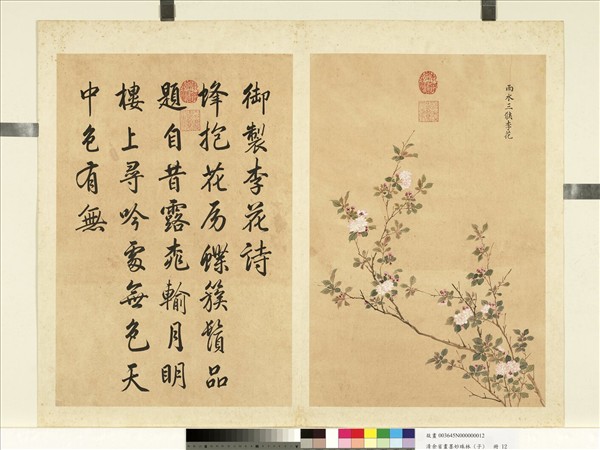 雨水三候李花
御製李花詩
蜂抱花房蝶簇鬚品
題自昔露桃輸月明
樓上尋吟處無色天
中色有無
故畫 003645N000000012
清余省畫墨妙珠林（子） 冊 12